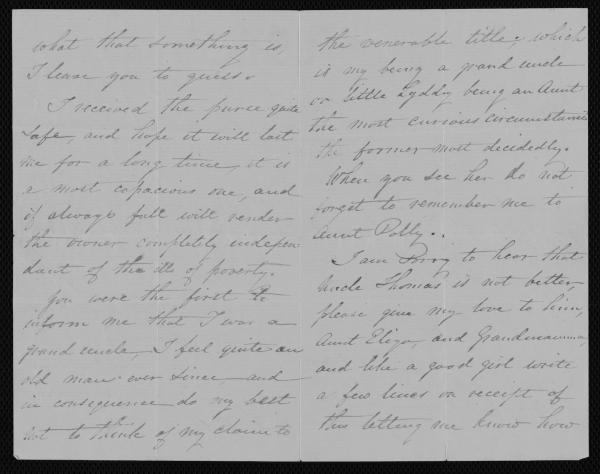 what that something is,
I leave you to guess.
I received the purse quite
safe, and hope it will last
me for a long time, it is
a most capacious one, and
if always full will render
the owner completly indepen
dant of the ills of poverty.
You were the first to
inform me that I was a
grand uncle, I feel quite an
old man ever since and
in consequence do my best
not to think of my claim to
the venerable title; which
is my being a grand uncle
or little Lyddy being an Aunt
the most curious circumstance
the former most decidedly.
When you see her do not
forget to remember me to
Aunt Polly..
I am sorry to hear that
Uncle Thomas is not better,
please give my love to him,
Aunt Eliza, and Grandmamma,
and like a good girl write
a few lines on receipt of
this letting me know how